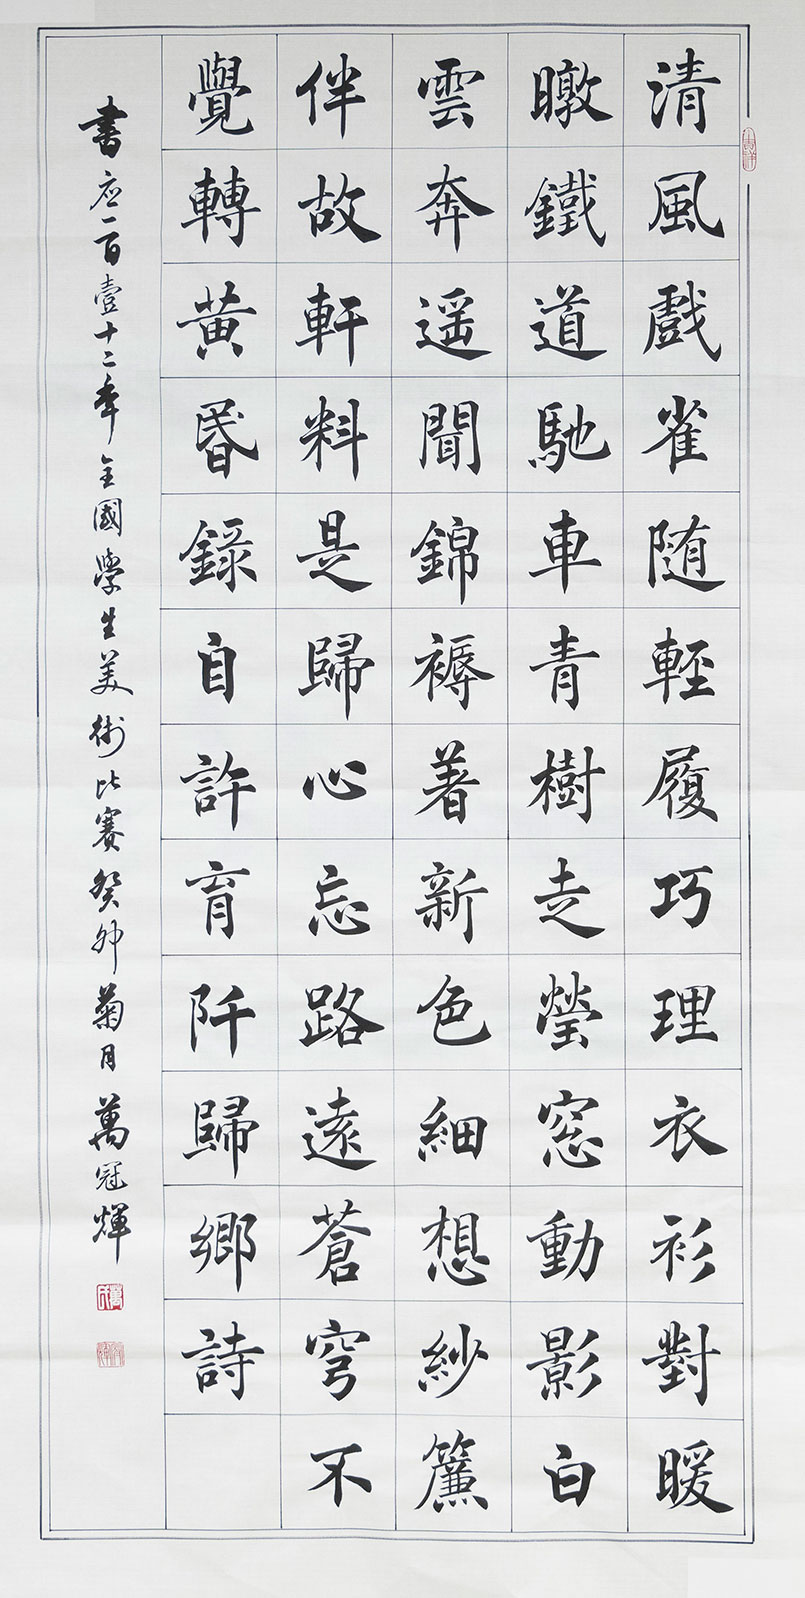 清風戲雀随輕履巧理衣衫對暖
暾鐵道馳車青樹走瑩窓動影白
雲奔遥聞錦褥着新色細想紗簾
伴故軒料是歸心忘路遠蒼穹不
覺轉黄昬錄自許育阡歸鄉詩
書应一百壹十二年全國學生美術比賽癸卯菊月萬冠輝